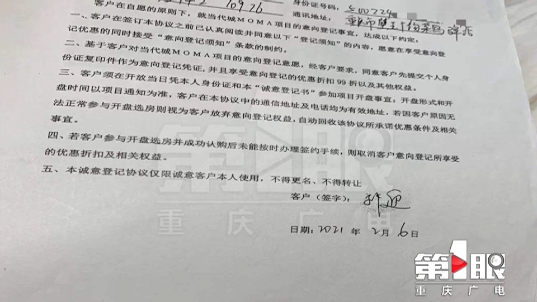 10926
身份证号码：500224
通讯地址：
客户在自愿的原则下，就当代城MOMA项目的意向登记事宜，达成以下约定：
一、客户在签订本协议之前已认真阅读并同意以下“登记须知”的内容，愿意在享受意向登
记优惠的同时接受“意向登记须知”条款的制约。
二、基于客户对当代城MOMA项目的意向登记意愿，经客户要求，同意客户先提交个人身
份证复印件作为意向登记凭证，并且享受意向登记的优惠折扣99折以及其他权益。
三、客户须在开放当日凭本人身份证和本“诚意登记书”参加项目开盘事宜；开盘形式和开
盘时间以项目通知为准，客户在本协议中的通信地址及电话均为有效地址，若因客户原因无
法正常参与开盘选房则视为客户放弃意向登记权益，自动回收该协议所承诺优惠条件及相关
事宜。
四、若客户参与开盘选房并成功认购后未能按时办理签约手续，则取消客户意向登记所享受
的优惠折扣及相关权益。
五、本诚意登记协议仅限诚意客户本人使用，不得更名、不得转让
客户（签字）：
日期：2021年2月6日
第1眼
重庆广电
第1眼
重庆广电